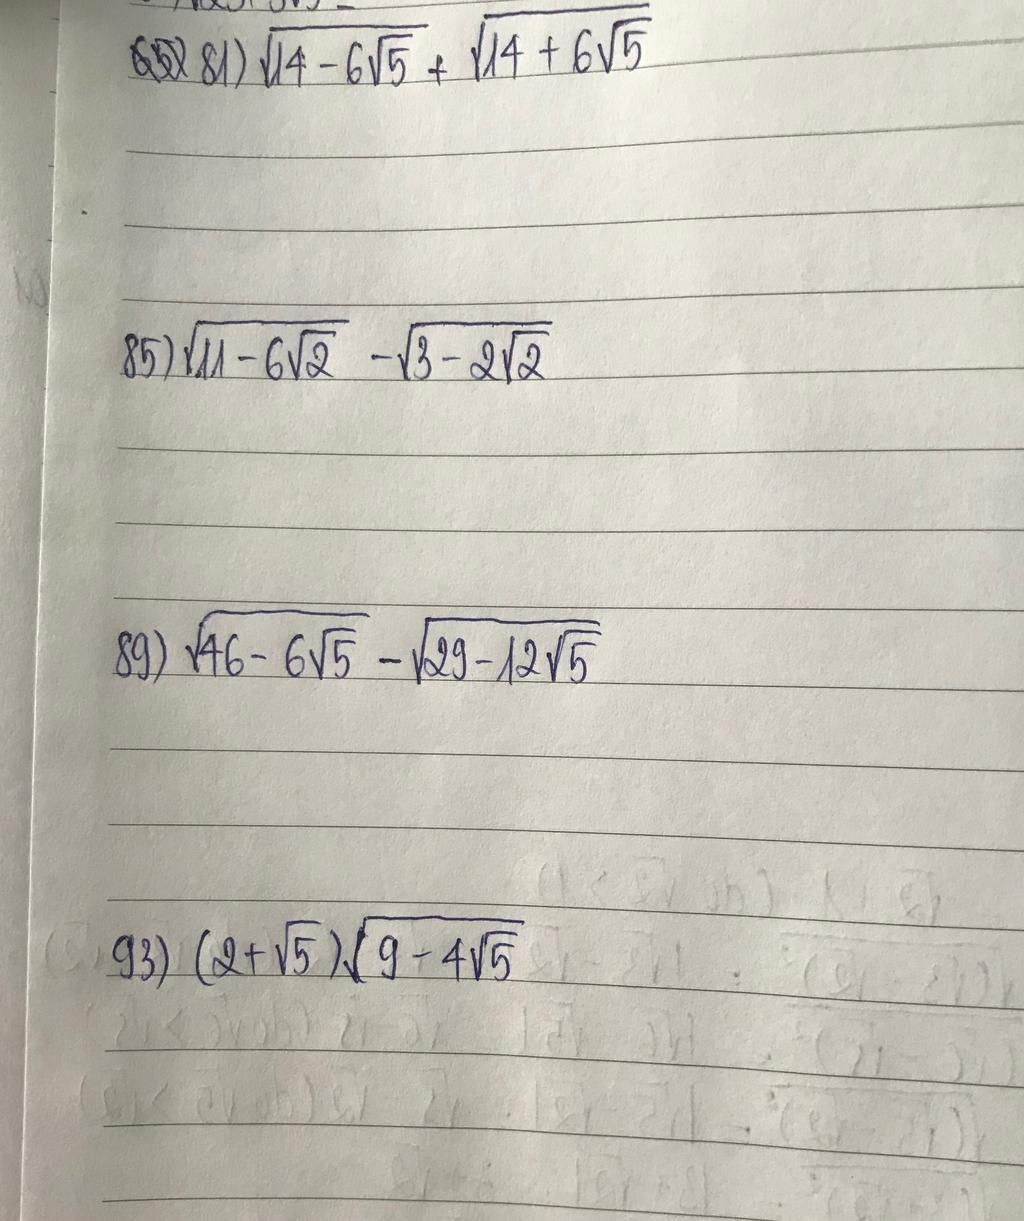 81) √(14 - 6√5) + √(14 + 6√5)
85) √(11 - 6√2) - √(3 - 2√2)
89) √(46 - 6√5) - √(29 - 12√5)
93) (2 + √5)√(9 - 4√5)